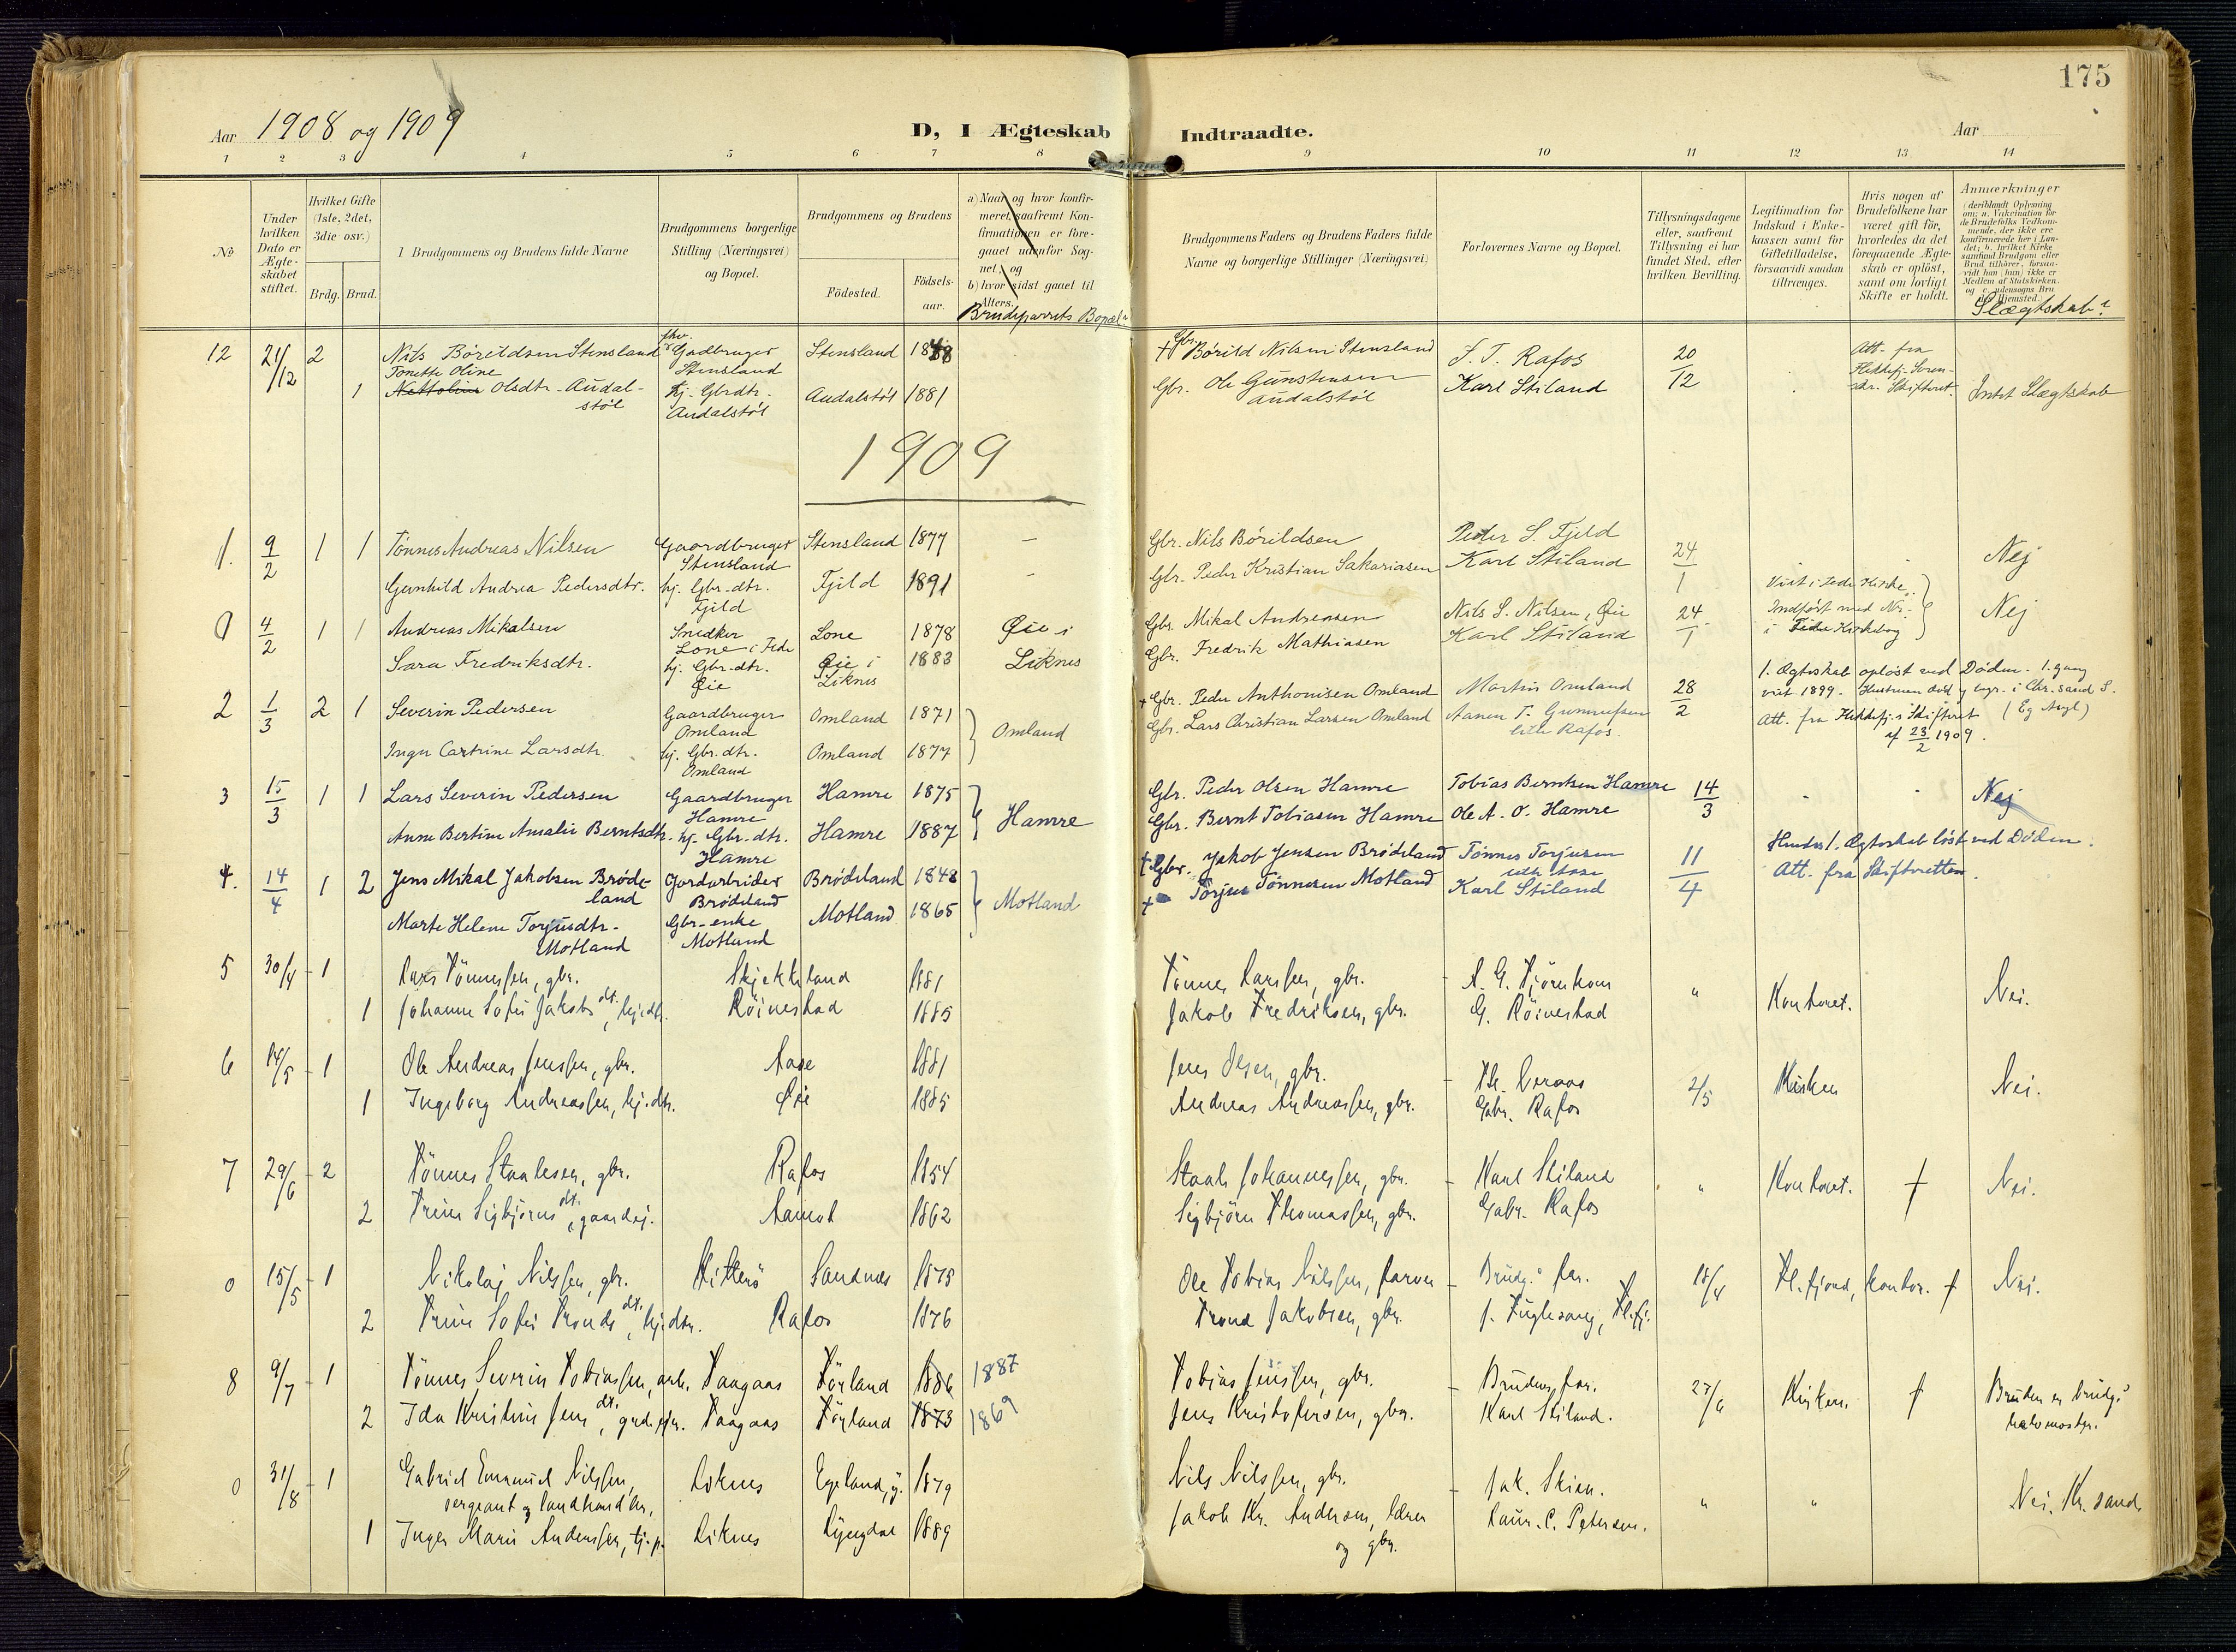 175
Aar 1908 og 1909
D, I Ægteskab Indtraadte.
Aar
1 2 3 4 5 6 7 8 9 10 11 12 13 14
No
Under hvilken Dato er Ægteskabet stiftet.
Hvilket Gifte (1ste, 2det, 3die osv.)
Brdg. Brud.
I Brudgommens og Brudens fulde Navne
Brudgommens borgerlige Stilling (Næringsvei) og Bopæl.
Brudgommens og Brudens
Fødested.
Fødselsaar.
a) Naar og hvor konfirmeret, saafremt Konfirmationen er foregaaet udenfor Sognet, og
b) hvor sidst gaaet til Alters.
Brudeparrets Bopæl?
Brudgommens Faders og Brudens Faders fulde Navne og borgerlige Stillinger (Næringsvei)
Forlovernes Navne og Bopæl.
Tillysningsdagene eller, saafremt Tillysning ei har fundet Sted, efter hvilken Bevilling.
Legitimation for Indskud i Enkekassen samt for Giftetilladelse, forsaavidt saadan tiltrænges.
Hvis nogen af Brudefolkene har været gift før, hvorledes da det foregaaende Ægteskab er opløst, samt om lovligt Skifte er holdt.
Anmærkninger
Slægtskab?
12 21/12 2 Nils Børildsen Stensland Gadbruger Stensland Stensland 18 8 Børild Nilsen Stensland S. T. Rafos 20/12 Att. fra
1 Tonette Oline Olsdtr. Audalstøl hj. Gbrdtr. Audalstøl Audalstøl 1881 Gbr. Ole Gunstensen Audalstøl Karl Stiland Skifteret. Intet Slægtskab
1909
1. 9/2 1 1 Tønnes Andreas Nilsen Gaardbruger Stensland Stensland 1877 – Gbr. Nils Børildsen Peder S. Fjeld 24/1 Nej
Gunhild Andrea Pedersdtr. hj. Gbr-dtr. Fjeld Fjeld 1891 – Gbr. Peder Kristian Sakariasen Karl Stiland
0 4/2 1 1 Andreas Mikalsen Snedker Lone i Feda Lone 1878 Øie i Gbr. Mikal Andreasen Nils S. Nilsen, Øie 24/1 Viet i Feda Kirke. Indført med No. i Feda Kirkebog Nej
Sara Fredriksdtr. hj. Gbr-dtr. Øie Øie i Liknes 1883 Liknes Gbr. Fredrik Mathiasen Karl Stiland
2 1/3 2 1 Severin Pedersen Gaardbruger Omland Omland 1871 Omland + Gbr. Peder Anthonisen Omland Martin Omland 28/2 1. Ægteskab opløst ved Døden. 1. gang viet 1899. Hustruen død og begr. i Chr.sand S.
Inger Cartrine Larsdtr. hj. Gbr. dtr. Omland Omland 1877 Gbr. Lars Christian Larsen Omland Aanen T. Gunnufsen Rafos. Att. fra Flekkefj.s Skifteret af 23/2 1909.
3 15/3 1 1 Lars Severin Pedersen Gaardbruger Hamre Hamre 1875 Hamre Gbr. Peder Olsen Hamre Tobias Berntsen Hamre 14/3 Nej
Anne Bertine Amalie Berntsdtr. hj. Gbr. dtr. Hamre Hamre 1887 Gbr. Bernt Tobiasen Hamre Ole A. O. Hamre
4. 14/4 1 2 Jens Mikal Jakobsen Brødeland Jordarbeider Brødeland Brødeland 1848 Motland + Gbr. Jakob Jensen Brødeland Tønnes Torjusen 11/4 Hendes 1. Ægteskab løst ved Døden.
Marte Helene Torjusdtr. Motland Gbr-enke Motland Motland 1865 + Torjus Tønnesen Motland Karl Stiland Att. fra Skifteretten.
5 30/4 1 Lars Tönnessen, gbr. Skjekkeland 1881 Tönnes Larssen, gbr. A. G. Tjörnhom " Kontoret. Nei.
1 Johanne Sofie Jakobsdt., hj.dtr. Röinestad 1885 Jakob Fredriksen, gbr. G. Röinestad
6 14/5 1 Ole Andreas Jenssen, gbr. Aase 1881 Jens Olsen, gbr. 2/5 Kirken Nei.
1 Ingeborg Andreassen, hj.dtr. Øie 1885 Andreas Andreassen, gbr. Gabr. Rafos
7 29/6 2 Tönnes Staalesen, gbr. Rafos 1854 Staale Johannessen, gbr. Karl Stiland " Kontoret. + Nei.
2 Trine Sigbjörnsdt., gaardej. Aamot 1862 Sigbjörn Thomassen, gbr. Gabr. Rafos
0 15/5 1 Nikolaj Nilssen, gbr. Hitterö Sandnes 1875 Ole Tobias Nilssen, farver Brudg.s far. 18/4 Fl.fjord, kontor. + Nei.
2 Trine Sofie Trondsdt., hj.dtr. Rafos 1876 Trond Jakobsen, gbr. J. Fuglesang, Fl.fj.
8 9/7 1 Tönnes Severin Tobiassen, arb. Haagaas Förland 1886 1887 Tobias Jenssen, gbr. Brudens far. 27/6 Kirken. + Bruden er brudg.s halvmoster.
2 Ida Kristine Jensdt., grd.ejer. Haagaas Förland 1873 1869 Jens Kristofersen, gbr. Karl Stiland.
0 31/8 1 Gabriel Emanuel Nilssen, sergeant og landhandler, Liknes Egeland, y. 1879 Nils Nilssen, gbr. Jak. Skien. " " Nei. Kr.sand.
1 Inger Marie Anderssen, tj.p. Liknes Lyngdal 1889 Jakob Kr. Andersen, lærer og gbr. Laur. C. Petersen.